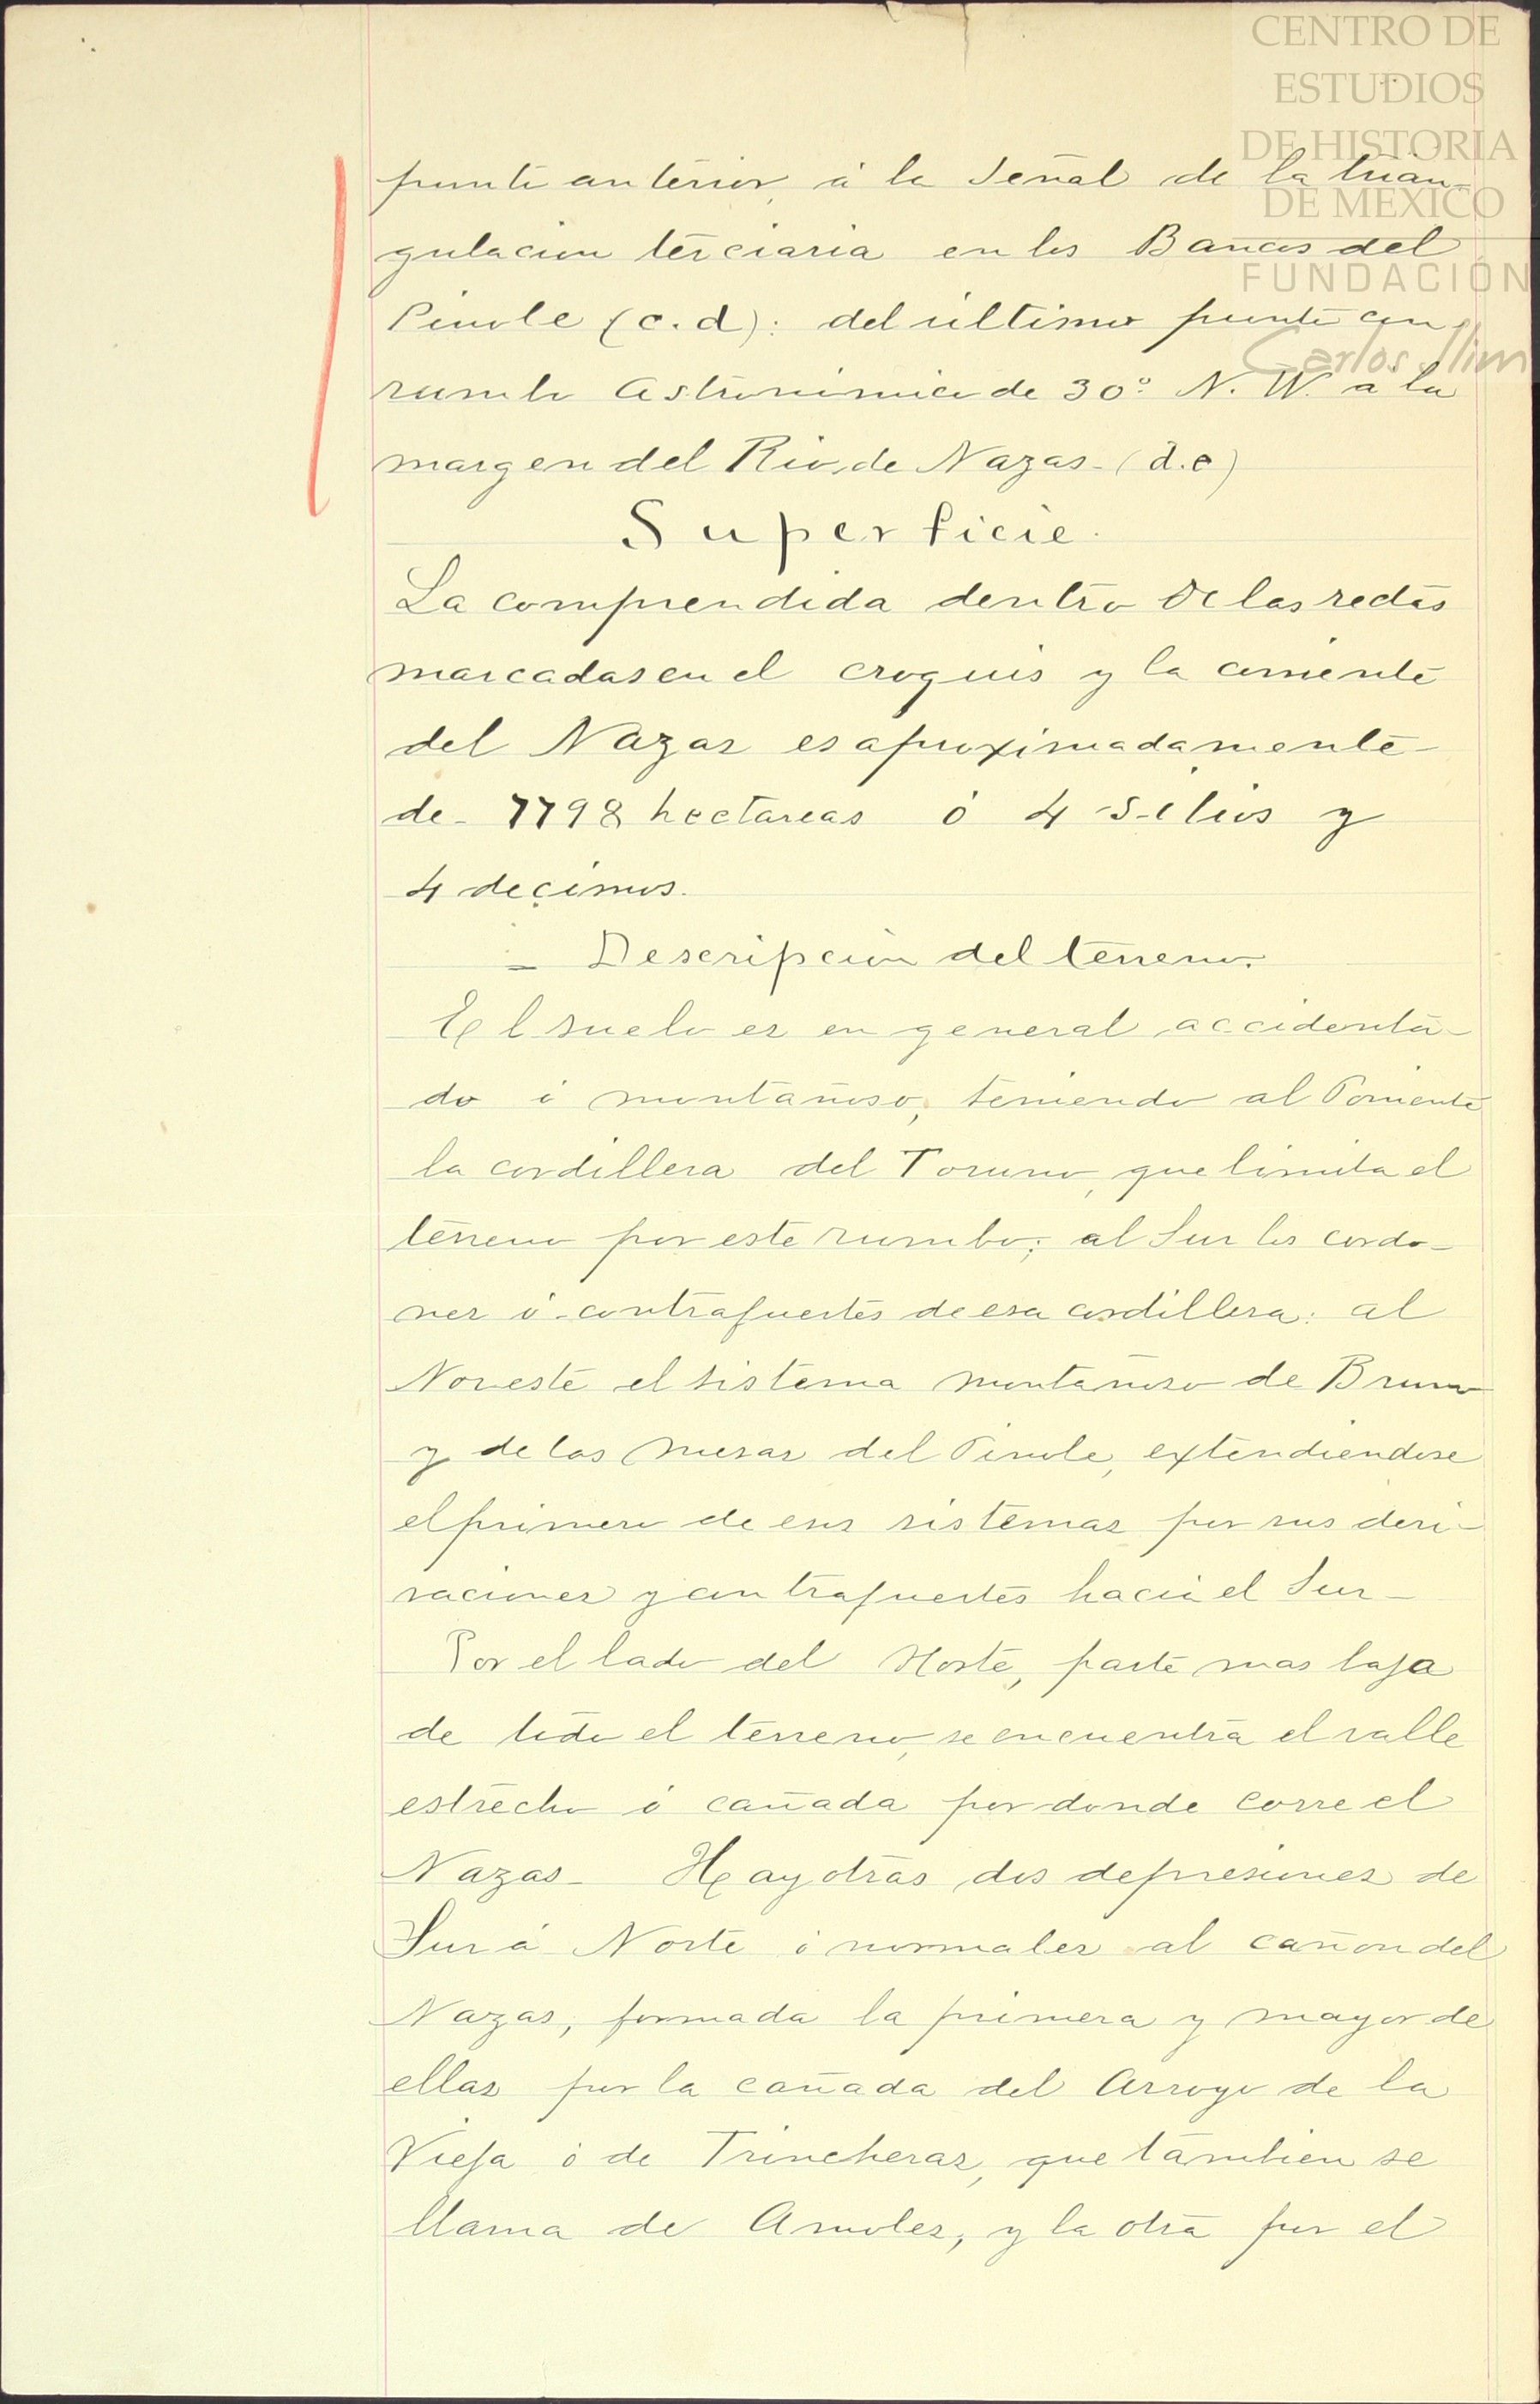 CENTRO DE
ESTUDIOS
DE HISTORIA
DE MEXICO
FUNDACIÓN
Carlos Slim
punto anterior, á la Señal de la trian-
gulacion terciaria en los Bancos del
Pinole (c.d): del último punto con
rumbo astronimico de 30° N. W. a la
margen del Rio de Nazas- (d.e)
Superficie.
La comprendida dentro de las rectas
marcadas en el croquis y la corriente
del Nazas es aproximadamente
de- 7798 hectareas ó 4 sitios y
4 decimos.
- Descripcion del terreno.
El suelo es en general accidenta-
do ó montañoso, teniendo al Poniente
la cordillera del Toruno, que limita el
terreno por este rumbo; al Sur los cordo-
nes ó contrafuertes de esa cordillera: al
Noreste el sistema montañoso de Bruno
y de las Mesas del Pinole, extendiendose
el primero de esos sistemas por sus deri-
vaciones y contrafuertes hacia el Sur-
Por el lado del Norte, parte mas baja
de todo el terreno, se encuentra el valle
estrecho ó cañada por donde corre el
Nazas- Hay otras dos depresiones de
Sur á Norte ó normales al cañon del
Nazas, formada la primera y mayor de
ellas por la cañada del Arroyo de la
Vieja ó de Trincheras, que tambien se
llama de Amoles, y la otra por el